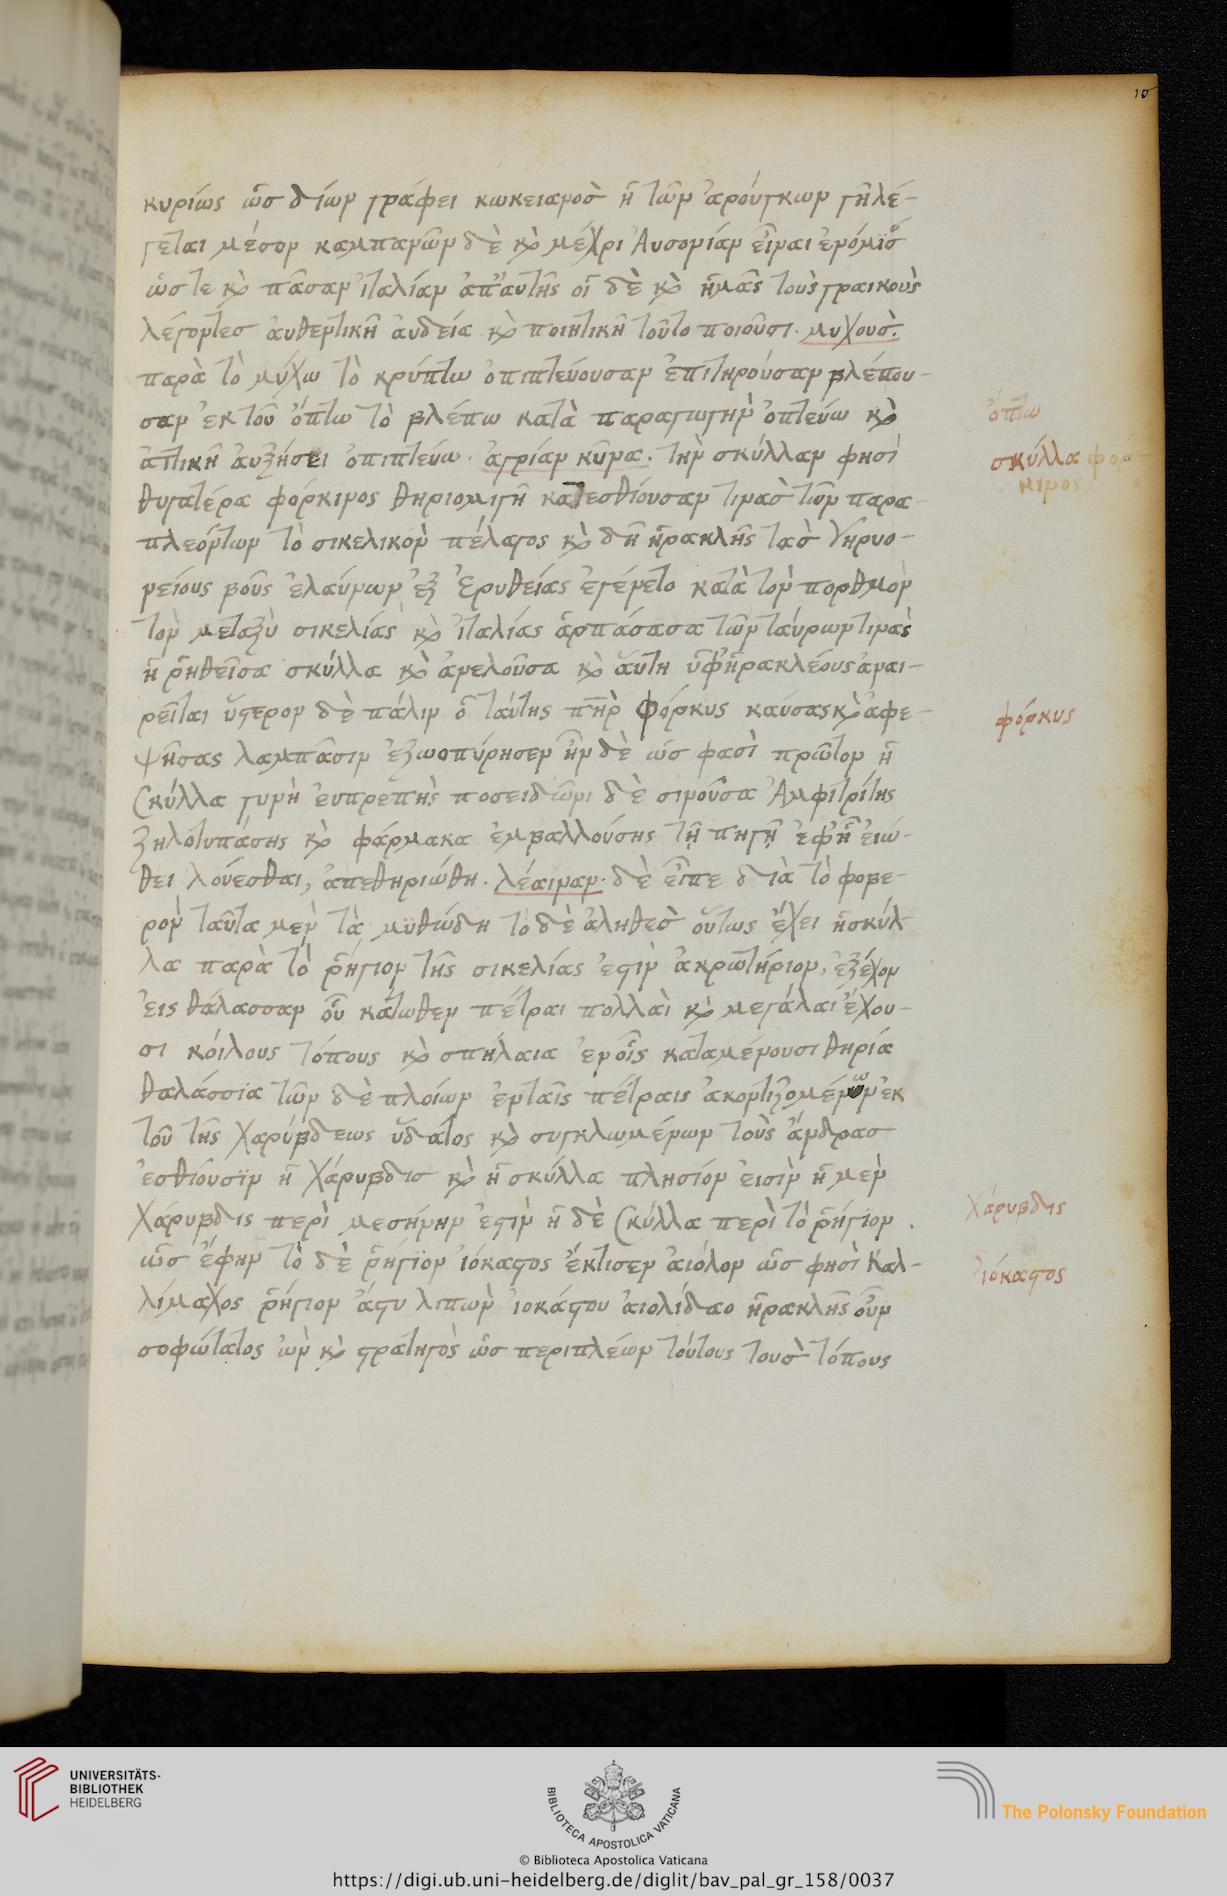 10
κυρίως ὡσ δίων γράφει κωκειανοσ ἡ τῶν ἀρούγκων γῆ λέ-
γεται μέσον καμπανῶν δὲ κ̀ μέχρι Αυσονίαν εἶναι ἐνόμϊσ
ὡστε κ̀ πᾶσαν ἰταλίαν ἀπ' αυτῆς οἱ δὲ κ̀ ἡμᾶς τοὺς γραικοὺς
λέγοντεσ ἀυθεντικῆ ἀυδεία κ̀ ποιητικῆ τοῦτο ποιοῦσι. μυχουσ.
παρὰ τὸ μύχω τὸ κρύπτω ὀπιπτεύουσαν ἐπιτηρούσαν βλέπου-
σαν ἐκ τοῦ ὄπτω τὸ βλέπω κατὰ παραγωγὴν ὀπτεύω κ̀
ἀττικῆ ἀυξήσει ὀπιπτεύω. ἀγρίαν κῦνα. τὴν σκύλλαν φησὶ
θυγατέρα φόρκυνος θηριομιγῆ κατεσθίουσαν τινασ τῶν παρα-
πλεόντων τὸ σικελικὸν πέλαγος κ̀ δὴ ἡρακλῆς τὰσ Γηρυο-
νείους βοῦς ἐλαύνων ἐξ Ἐρυθείας ἐγένετο κατὰ τὸν πορθμὸν
τὸν μεταξὺ σικελίας κ̀ ἰταλίας ἁρπάσασα τῶν ταύρων τινὰς
ἡ ῥηθεῖσα σκύλλα κ̀ ἀνελοῦσα κ̀ ἄυτη ὑφ' ἡρακλέους ἀναι-
ρεῖται ὕστερον δὲ πάλιν ὁ ταύτης πὴρ Φόρκυς καύσας κ̀ ἀφε-
ψήσας λαμπᾶσιν ἐζωοπύρησεν ἦν δὲ ὡσ φασὶ πρῶτον ἡ
Σκύλλα γυνὴ ἐυπρεπὴς ποσειδῶνι δὲ σινοῦσα Ἀμφιτρίτης
Ζηλοτυπάσης κ̀ φάρμακα ἐμβαλλούσης τῇ πηγῇ ἐφ' ἧ ἐιώ-
θει λούεσθαι, ἀπεθηριώθη. λέαιναν. δὲ εἶπε διὰ τὸ φοβε-
ρὸν ταῦτα μὲν τὰ μϋθώδη τὸ δὲ ἀληθεσ οὕτως ἔχει ἡ σκύλ-
λα παρὰ τὸ ῥήγιον τῆς σικελίας ἐστὶν ἀκρωτήριον, ἐξέχον
ἐις θάλασσαν οὗ κάτωθεν πέτραι πολλαὶ κ̀ μεγάλαι ἔχου-
σι κόιλους τόπους κ̀ σπήλαια ἐν οἷς καταμένουσι θηρία
θαλάσσϊα τῶν δὲ πλοίων ἐν ταῖς πέτραις ἀκοντιζομένων ἐκ
τοῦ τῆς Χαρύβδεως ὕδατος κ̀ συγκλωμένων τοὺς ἄνδρασ
ἐσθίουσϊν ἡ Χάρυβδισ κ̀ ἡ σκύλλα πλησίον ἐισὶν ἡ μὲν
Χάρυβδις περὶ μεσήνην ἐστὶν ἡ δὲ Σκύλλα περὶ τὸ ῥήγιον.
ὡς ἔφην τὸ δὲ ῥήγϊον ἰόκαστος ἔκτισεν ἀιόλον ὡσ φησὶ Καλ-
λίμαχος ῥήγιον ἄστυ λιπὼν ἰοκάστου ἀιολίδαο ἡρακλῆς οὖν
σοφώτατος ὢν κ̀ στρατηγὸς ὡσ περιπλέων τούτους τουσ τόπους
ὄπτω
σκύλλα φόρ-
κινος
φόρκυς
Χάρυβδις
ἰόκαστος
UNIVERSITÄTS-
BIBLIOTHEK
HEIDELBERG
BIBLIOTECA APOSTOLICA VATICANA
The Polonsky Foundation
© Biblioteca Apostolica Vaticana
https://digi.ub.uni-heidelberg.de/diglit/bav_pal_gr_158/0037